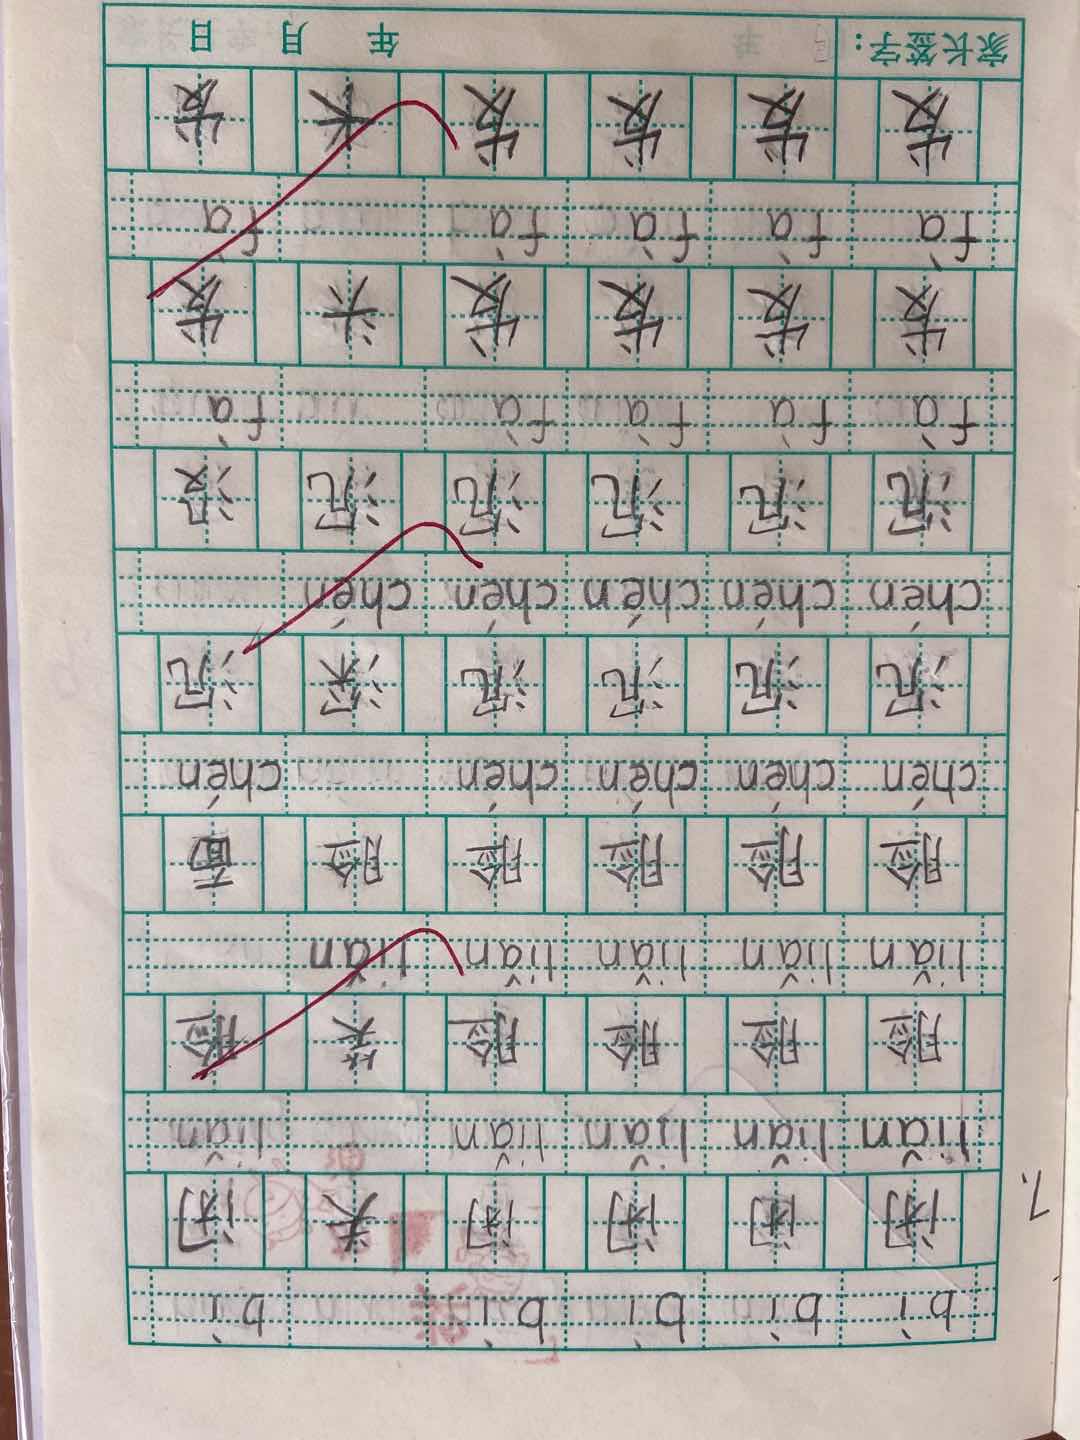 bì bì bì bì bì
闭 闭 闭 闭 关 闭
7.
liǎn liǎn liǎn liǎn liǎn
脸 脸 脸 脸 笑 脸
liǎn liǎn liǎn liǎn liǎn
脸 脸 脸 脸 脸 面
chén chén chén chén chén
沉 沉 沉 沉 深 沉
chén chén chén chén chén
沉 沉 沉 沉 沉 没
fà fà fà fà fà
发 发 发 发 头 发
fà fà fà fà fà
发 发 发 发 发
家长签字： 年 月 日